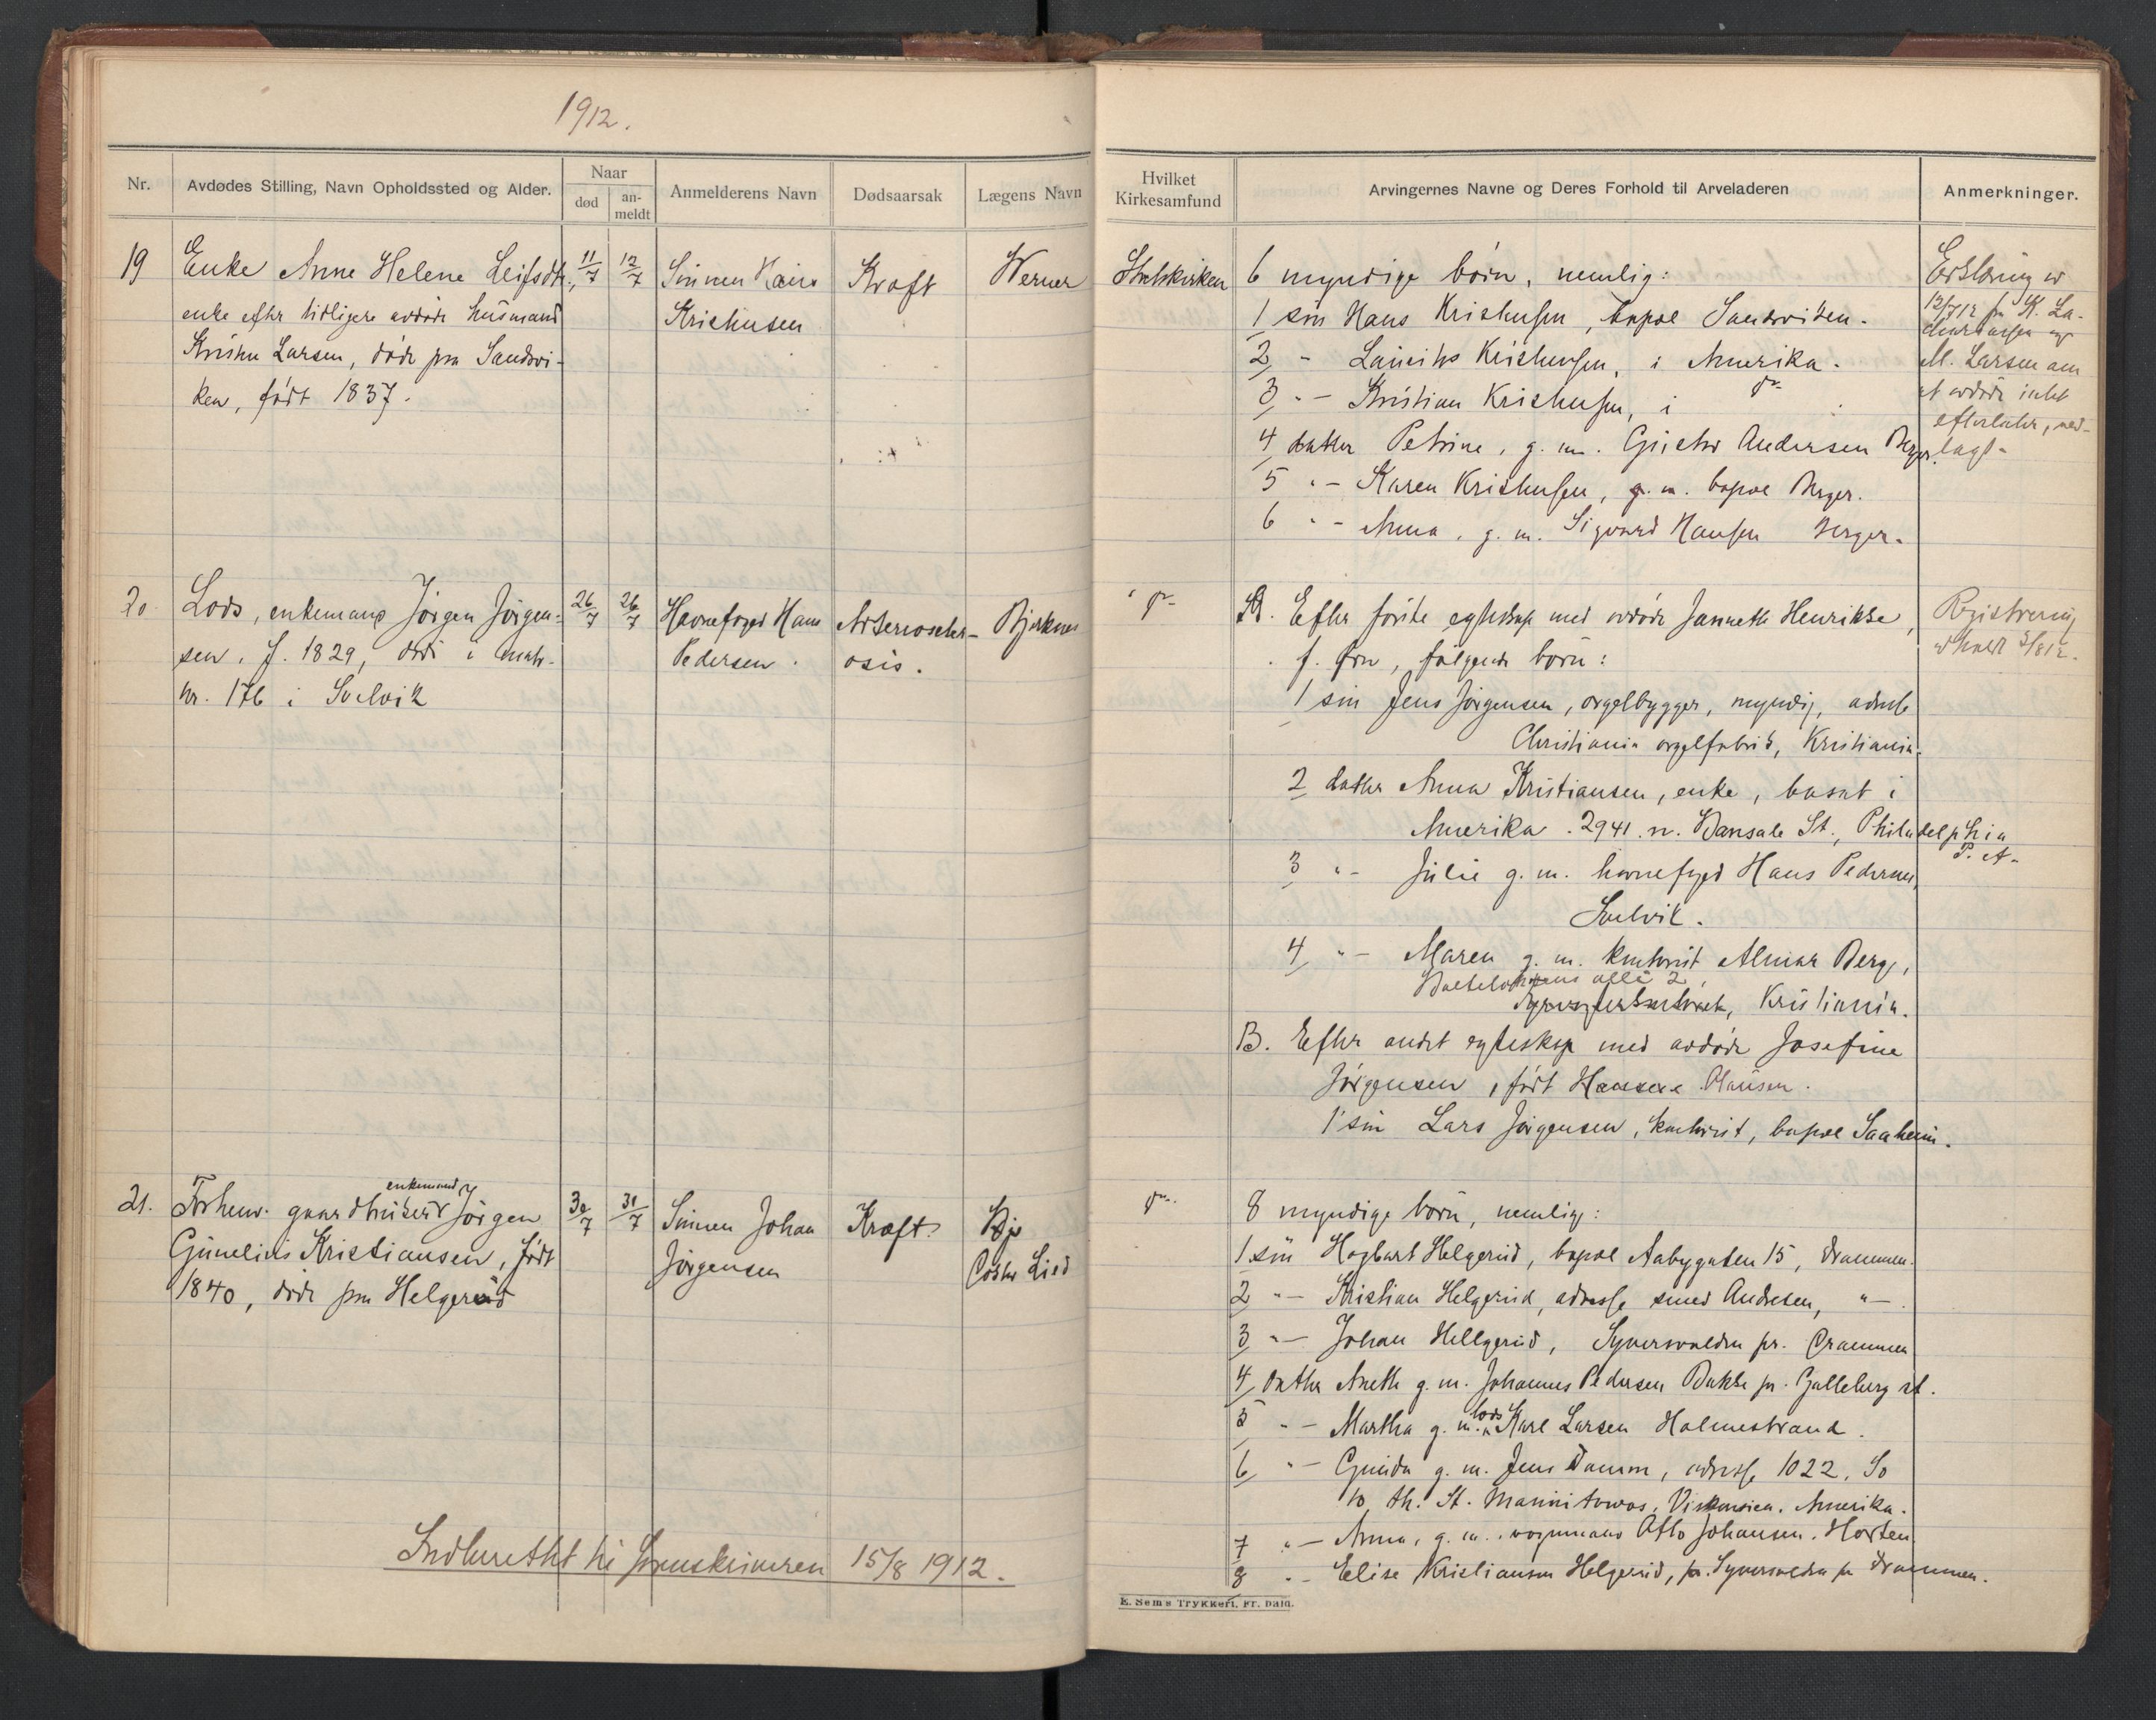 1912.
Nr.
Avdødes Stilling, Navn Opholdssted og Alder.
Naar
død
an-
meldt
Anmelderens Navn
Dødsaarsak
Lægens Navn
Hvilket
Kirkesamfund
Arvingernes Navne og Deres Forhold til Arveladeren
Anmerkninger.
19
Enke Anne Helene Leifsdtr.,
enke efter tidligere avdøde husmand
Kristen Larsen, døde paa Sandvi-
ken, født 1837.
11/7
12/7
Sønnen Hans
Kristensen
Kræft
Werner
Statskirken
6 myndige børn, nemlig:
1 søn Hans Kristensen, bopæl Sandviken.
2 " Lauritz Kristensen, i Amerika.
3 " - Kristian Kristensen, i do
4 datter Petrine, g. m. Gustav Andersen Berger.
5 " - Karen Kristensen, g. m. bopæl Berger.
6 " - Anna, g. m. Sigvard Hansen Berger.
Erklæring av
12/7 12 fra K.
M. Larsen om
at avdøde intet
efterlater, ned-
lagt.
20.
Lods, enkemand Jørgen Jørgen-
sen, f. 1829, død i matr.
nr. 176 i Svelvik
26/7
26/7
Havnefoged Hans
Pedersen.
Arterioscler-
osis.
Bjerknes
" do -
A. Efter første egteskap med avdøde Janneth Henrikke,
f. Ørn, følgende børn:
1 søn Jens Jørgensen, orgelbygger, myndig, adresse
Christiania orgelfabrik, Kristiania.
2 datter Anna Kristiansen, enke, bosat i
Amerika. 2941. n. St., Philadelphia
P. A.
3 " - Julie g. m. havnefoged Hans Pedersen,
Svelvik.
4 " - Maren g. m. kontorist Almar Berg,
alle 2,
Kristiania.
B. Efter andet egteskap med avdøde Josefine
Jørgensen, født Hansen Olausen.
1 søn Lars Jørgensen, kontorist, bopæl Saaheim.
Registrering
avholdt 3/8 12.
21.
Forhenv. gaardbruker enkemand Jørgen
Gunelius Kristiansen, født
1840, døde paa Helgerud
30/7
31/7
Sønnen Johan
Jørgensen
Kræft
Coster Lied
do -
8 myndige børn, nemlig:
1 søn Hagbart Helgerud, bopæl Aabygaten 15, Drammen.
2 " - Kristian Helgerud, adresse smed Andresen, " -
3 " - Johan Hellgerud, Syversvolden pr. Drammen
4 datter Aneth g. m. Johannes Pedersen Bakke pr. Galleberg st.
5 " - Martha g. m. lods Karl Larsen Holmestrand.
6 " - Gunda g. m. Jens Damm, adresse 1022, So
10 th. St. Mannitowos, Viskonsien. Amerika.
7 " - Anna, g. m. vognmand Otto Johansen. Horten.
8 " - Elise Kristiansen Helgerud, pr. Syversvolden pr Drammen.
Indberettet til sorenskriveren 15/8 1912.
E. Sem's Trykkeri, Fr. hald.